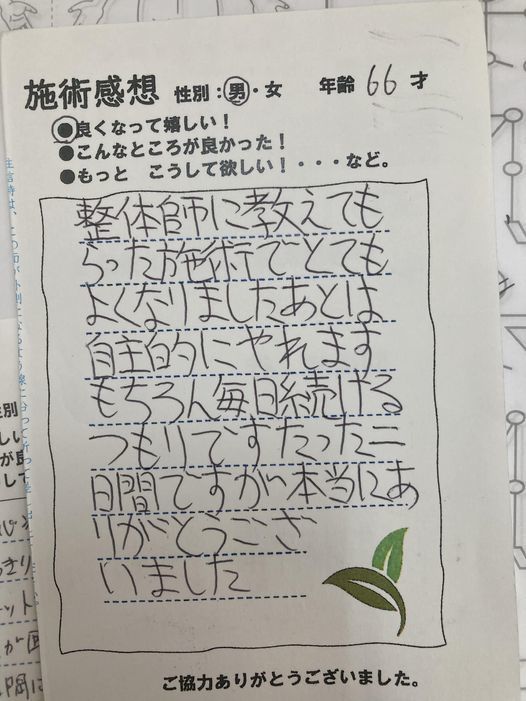 施術感想 性別：男・女 年齢 66 才
●良くなって嬉しい！
●こんなところが良かった！
●もっと こうして欲しい！・・・など。
整体師に教えても
らった施術でとても
よくなりましたあとは
自主的にやれます
もちろん毎日続ける
つもりですたった二
日間ですが本当にあ
りがとうござ
いました
ご協力ありがとうございました。